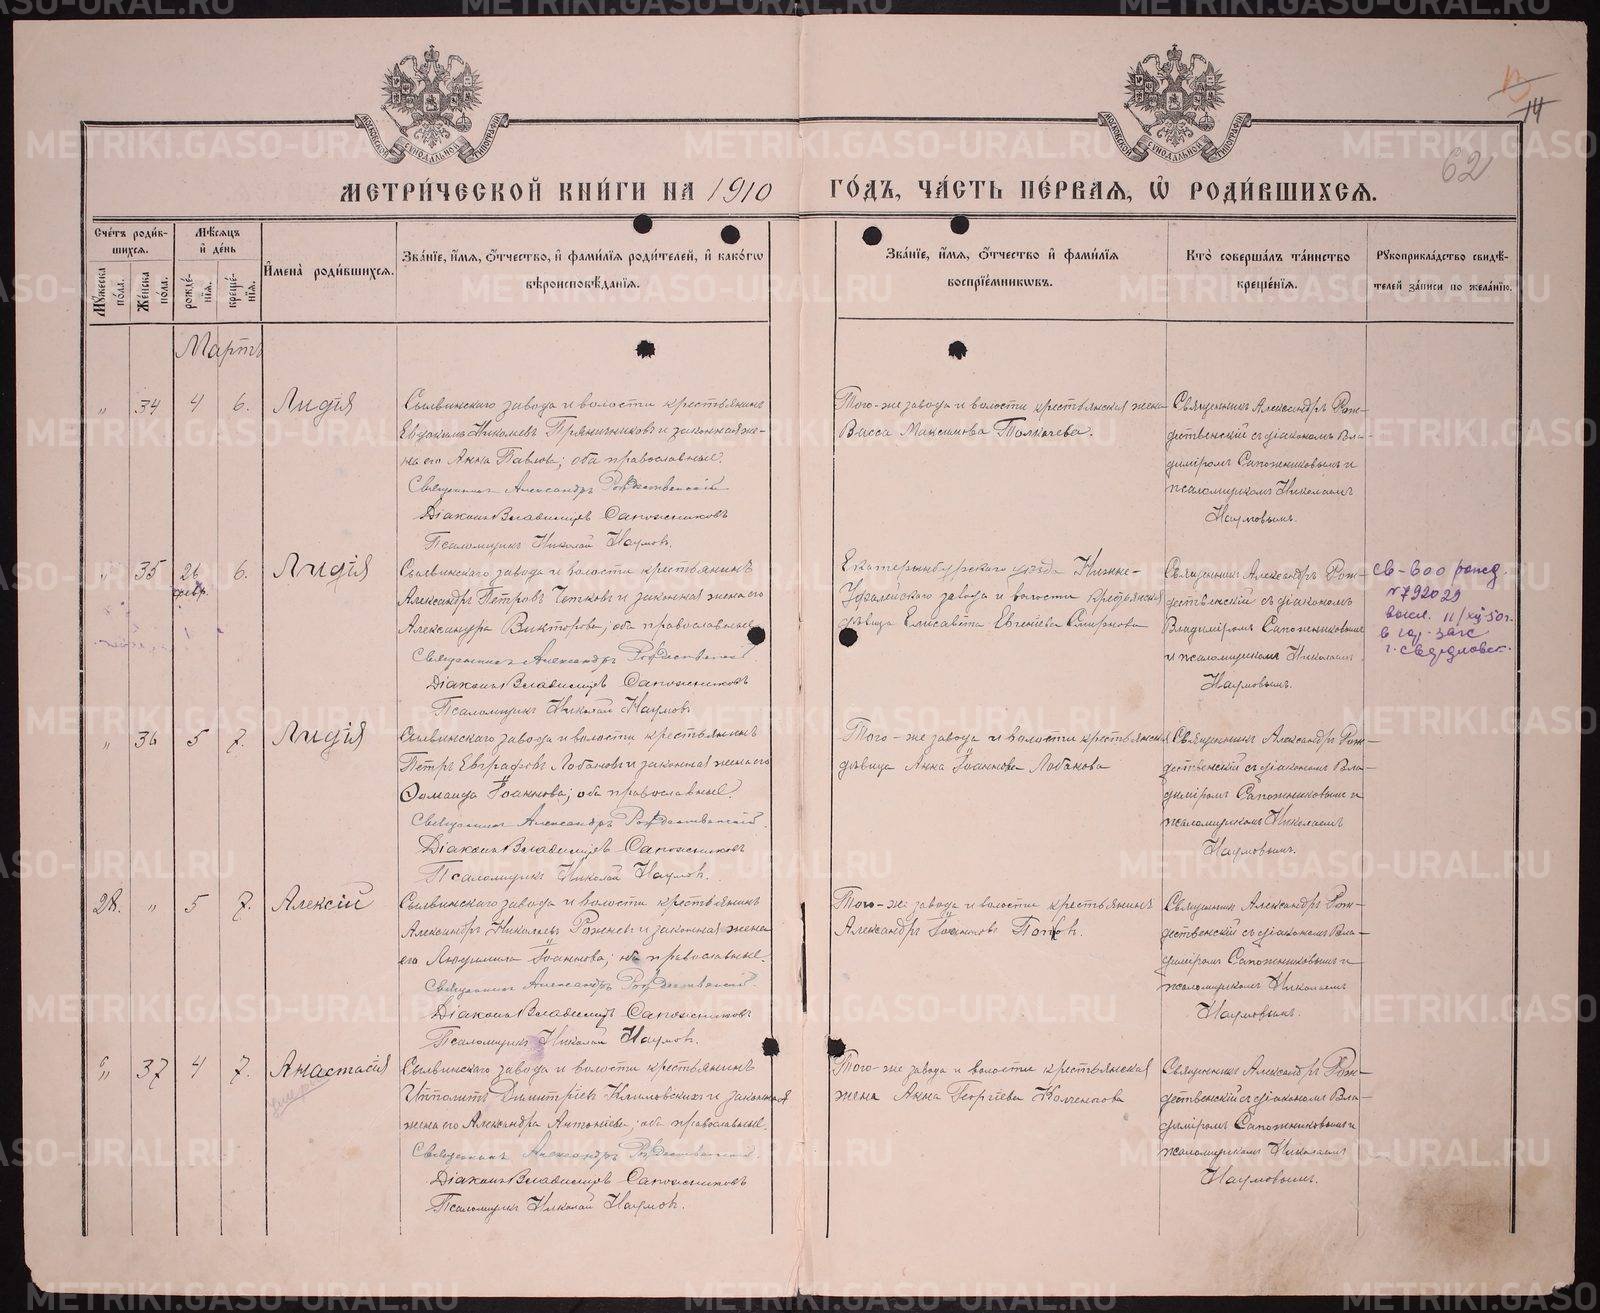 МЕТРИ́ЧЕСКОЙ КНИ́ГИ НА 1910 ГО́ДЪ, ЧА́СТЬ ПЕ́РВАЯ, Ѿ РОДИ́ВШИХСЯ.
14
62
МОСКОВСКОЙ СѴНОДАЛЬНОЙ ТИПОГРАФІИ
МОСКОВСКОЙ СѴНОДАЛЬНОЙ ТИПОГРАФІИ
Сче́тъ роди́вшихся.
Мꙋ́жеска по́ла.
Же́нска по́ла.
Мѣ́сяцъ и́ де́нь
рожде́нїя.
креще́нїя.
И́мена̀ роди́вшихся.
Зва́нїе, и́мя, ѻ́тчество, и́ фами́лїя роди́телей, и́ како́гѡ
вѣроисповѣ́данїя.
Зва́нїе, и́мя, ѻ́тчество и́ фами́лїя
воспрїе́мникѡвъ.
Кто̀ соверша́лъ та́инство
креще́нїя.
Рꙋкоприкла́дство свидѣ́-
телей за́писи по жела́нїю.
Мартъ
„ 34 4 6. Лидія
Сылвинскаго завода и волости крестьянинъ
Евдокимъ Николаевъ Пряничниковъ и законная же-
на его Анна Павлова; оба православные.
Священникъ Александръ Рождественскій
Діаконъ Владимиръ Сапожниковъ
Псаломщикъ Николай Наумовъ.
Того-же завода и волости крестьянская жена
Васса Максимова Толкачева.
Священникъ Александръ Рож-
дественскій съ діакономъ Вла-
димиромъ Сапожниковымъ и
псаломщикомъ Николаемъ
Наумовымъ.
„ 35 26 февр. 6. Лидія
Сылвинскаго завода и волости крестьянинъ
Александръ Петровъ Четковъ и законная жена его
Александра Викторова; оба православные
Священникъ Александръ Рождественскій
Діаконъ Владимиръ Сапожниковъ
Псаломщикъ Николай Наумовъ
Екатеринбургскаго уѣзда Нижне-
Уфалейскаго завода и волости крестьянская
дѣвица Елисавета Евгеніева Смирнова
Священникъ Александръ Рож-
дественскій съ діакономъ
Владимиромъ Сапожниковымъ
и псаломщикомъ Николаемъ
Наумовымъ.
св-воо рожд.
№792029
высл. 11/XII 50г.
в гор. загс
г. Свердловск.
„ 36 5 7. Лидія
Сылвинскаго завода и волости крестьянинъ
Петръ Евграфовъ Лобановъ и законная жена его
Фомаида Іоаннова; оба православные.
Священникъ Александръ Рождественскій.
Діаконъ Владимиръ Сапожниковъ
Псаломщикъ Николай Наумовъ.
Того-же завода и волости крестьянская
дѣвица Анна Іоаннова Лобанова
Священникъ Александръ Рож-
дественскій съ діакономъ Вла-
димиромъ Сапожниковымъ и
псаломщикомъ Николаемъ
Наумовымъ.
28. „ 5 7. Алексій
Сылвинскаго завода и волости крестьянинъ
Александръ Николаевъ Рожневъ и законная жена
его Людмила Іоаннова; оба православные.
Священникъ Александръ Рождественскій.
Діаконъ Владимиръ Сапожниковъ
Псаломщикъ Николай Наумовъ.
Того-же завода и волости крестьянинъ
Александръ Іоанновъ Поповъ.
Священникъ Александръ Рож-
дественскій съ діакономъ Вла-
димиромъ Сапожниковымъ и
псаломщикомъ Николаемъ
Наумовымъ.
„ 37 4 7. Анастасія
умерла
Сылвинскаго завода и волости крестьянинъ
Ипполитъ Димитріевъ Климовскихъ и законная
жена его Александра Антоніева; оба православные.
Священникъ Александръ Рождественскій.
Діаконъ Владимиръ Сапожниковъ
Псаломщикъ Николай Наумовъ.
Того-же завода и волости крестьянская
жена Анна Георгіева
Священникъ Александръ Рож-
дественскій съ діакономъ Вла-
димиромъ Сапожниковымъ и
псаломщикомъ Николаемъ
Наумовымъ.
METRIKI.GASO-URAL.RU